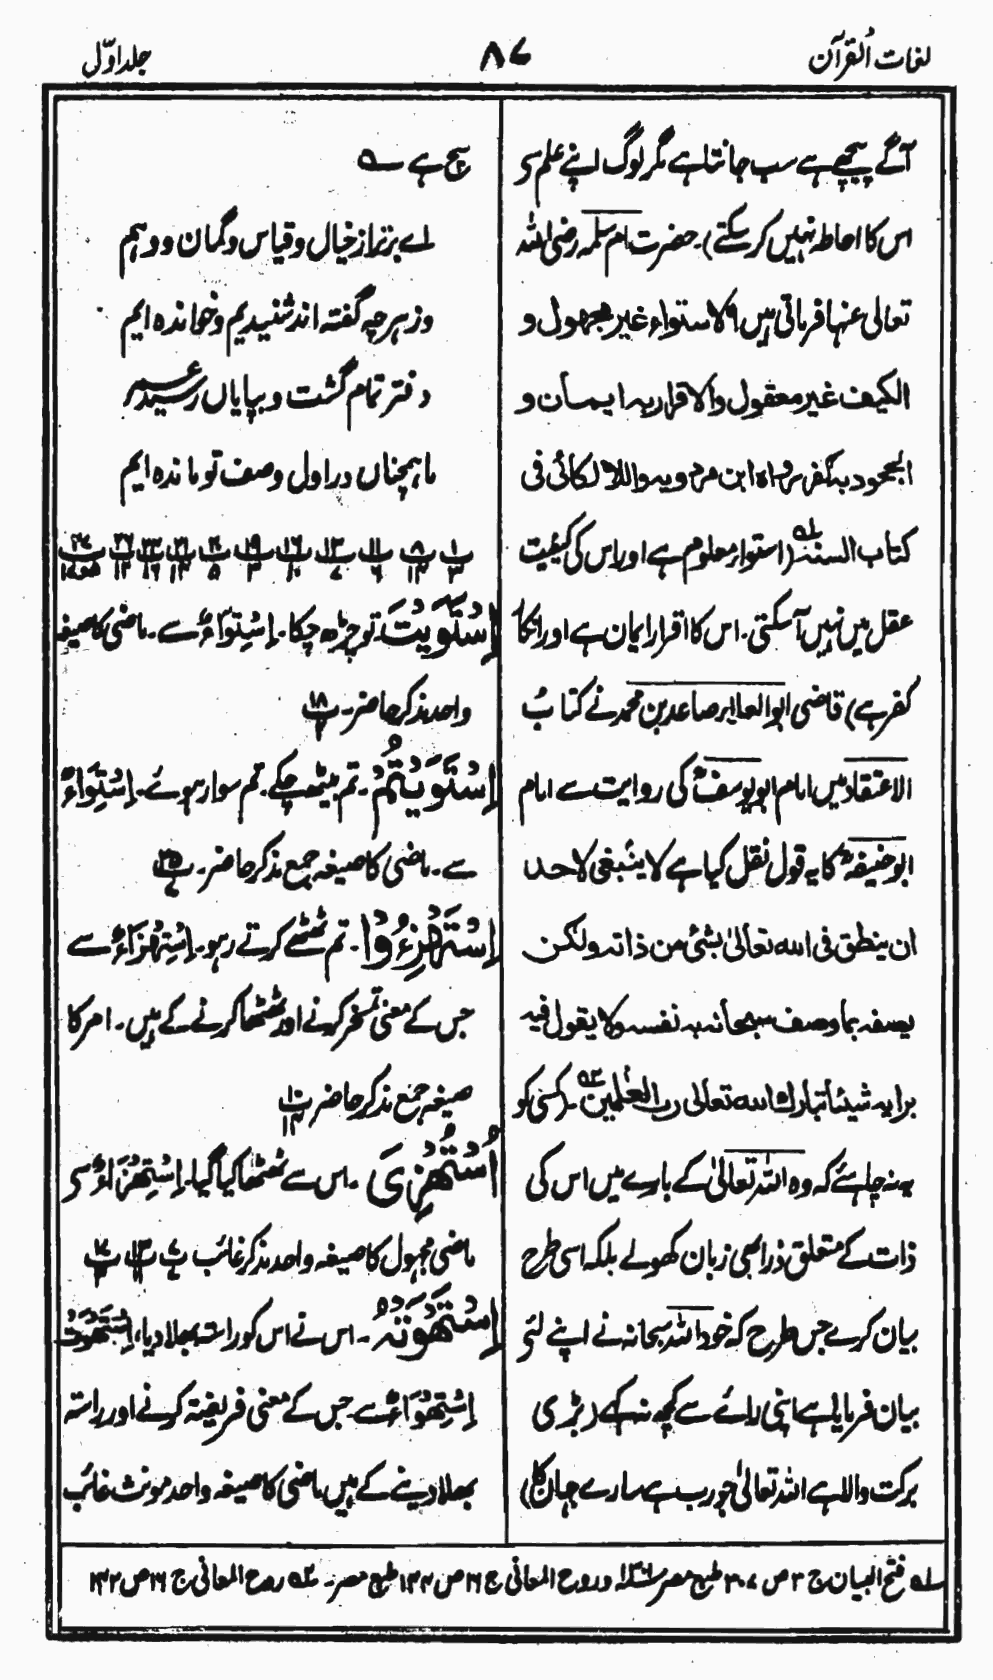 لغات القرآن
۸۷
جلد اوّل
آگے پیچھے ہے سب جانتا ہے مگر لوگ اپنے علم سے
اس کا احاطہ نہیں کر سکتے)۔ حضرت ام سلمہ رضی اللہ
تعالی عنہا فرماتی ہیں الاستواء غیر مجھول و
الکیف غیر معقول والاقرار بہ ایمان و
الجحود بہ کفر رواہ ابن مردویہ واللالکائی فی
کتاب السنۃ لہ (استوار معلوم ہے اور اس کی کیفیت
عقل میں نہیں آ سکتی۔ اس کا اقرار ایمان ہے اور انکار
کفر ہے) قاضی ابو العلا صاعد بن محمد نے کتابُ
الاعتقاد میں امام ابو یوسف کی روایت سے امام
ابو حنیفہ کا یہ قول نقل کیا ہے لا ینبغی لاحد
ان ینطق فی اللہ تعالیٰ بشئ من ذاتہ ولکن
یصفہ بما وصف سبحانہ بہ نفسہ ولا یقول فیہ
برایہ شیئا تبارک اللہ تعالی رب العٰلمین ۔ (کسی کو
یہ نہ چاہئے کہ وہ اللہ تعالیٰ کے بارے میں اس کی
ذات کے متعلق ذرا بھی زبان کھولے بلکہ اسی طرح
بیان کرے جس طرح کہ خود اللہ سبحانہ نے اپنے لئے
بیان فرمایا ہے اپنی رائے سے کچھ نہ کہے (بڑی
برکت والا ہے اللہ تعالیٰ جو رب ہے سارے جہان کا)
سچ ہے ؎
اے برتر از خیال و قیاس و گمان و وہم
وز ہرچہ گفتہ اند شنیدیم و خواندہ ایم
دفتر تمام گشت و بپایاں رسید عمر
ما ہمچناں در اول وصف تو ماندہ ایم
اِسْتَوَيْتَ۔ تو چڑھ چکا۔ اِسْتِوَاءٌ سے۔ ماضی کا صیغہ
واحد مذکر حاضر۔ ۱۸
اِسْتَوَيْتُمْ۔ تم بیٹھ چکے۔ تم سوار ہوئے۔ اِسْتِوَاءٌ
سے۔ ماضی کا صیغہ جمع مذکر حاضر۔ ۲۵
اِسْتَهْزِءُوْا۔ تم ٹھٹھے کرتے رہو۔ اِسْتِهْزَاءٌ سے
جس کے معنی تمسخر کرنے اور ٹھٹھا کرنے کے ہیں۔ امر کا
صیغہ جمع مذکر حاضر ۱۰
اُسْتُهْزِئَ۔ اس سے ٹھٹھا کیا گیا۔ اِسْتِهْزَاءٌ سے
ماضی مجہول کا صیغہ واحد مذکر غائب
اِسْتَهْوَتْهُ۔ اس نے اس کو راستہ بھلا دیا، اِسْتَهْوَتْ
اِسْتِهْوَاءٌ سے جس کے معنی فریفتہ کرنے اور راستہ
بھلا دینے کے ہیں ماضی کا صیغہ واحد مونث غائب
لہ فتح البیان ج ۳ ص ۳۰۷ طبع مصر و روح المعانی ج ۱۶ ص ۱۳۴ طبع مصر۔ روح المعانی ج ۱۶ ص ۱۴۲